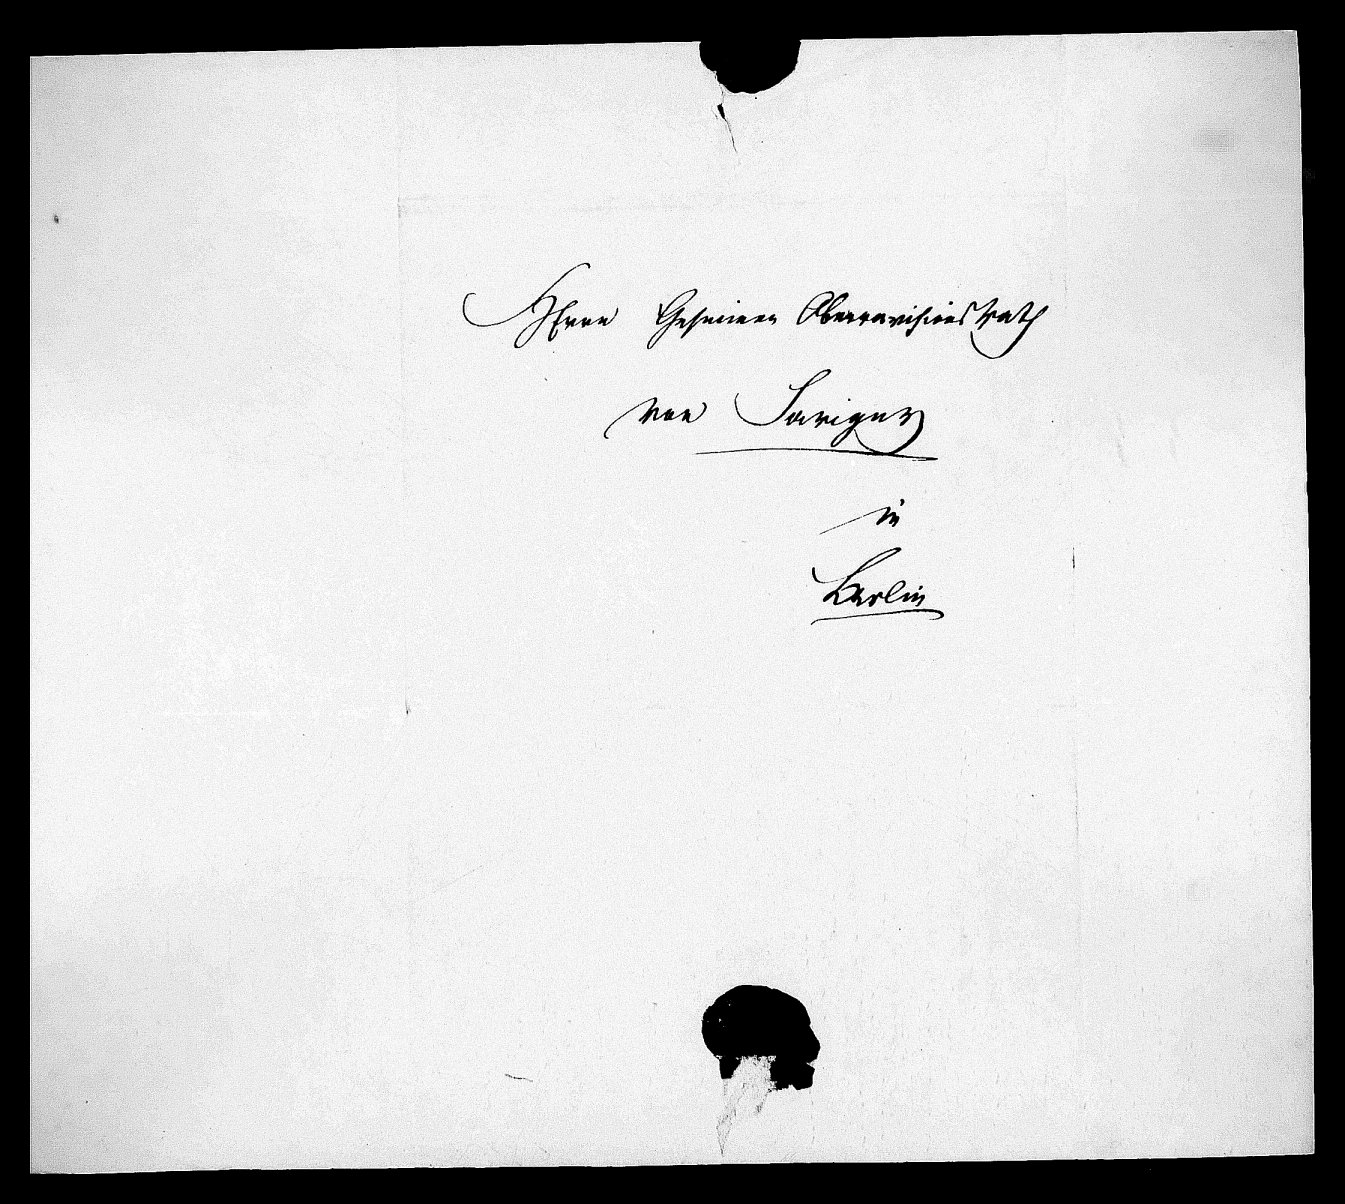 Herrn Geheimen Oberrevisionsrath
von Savigny
in
Berlin